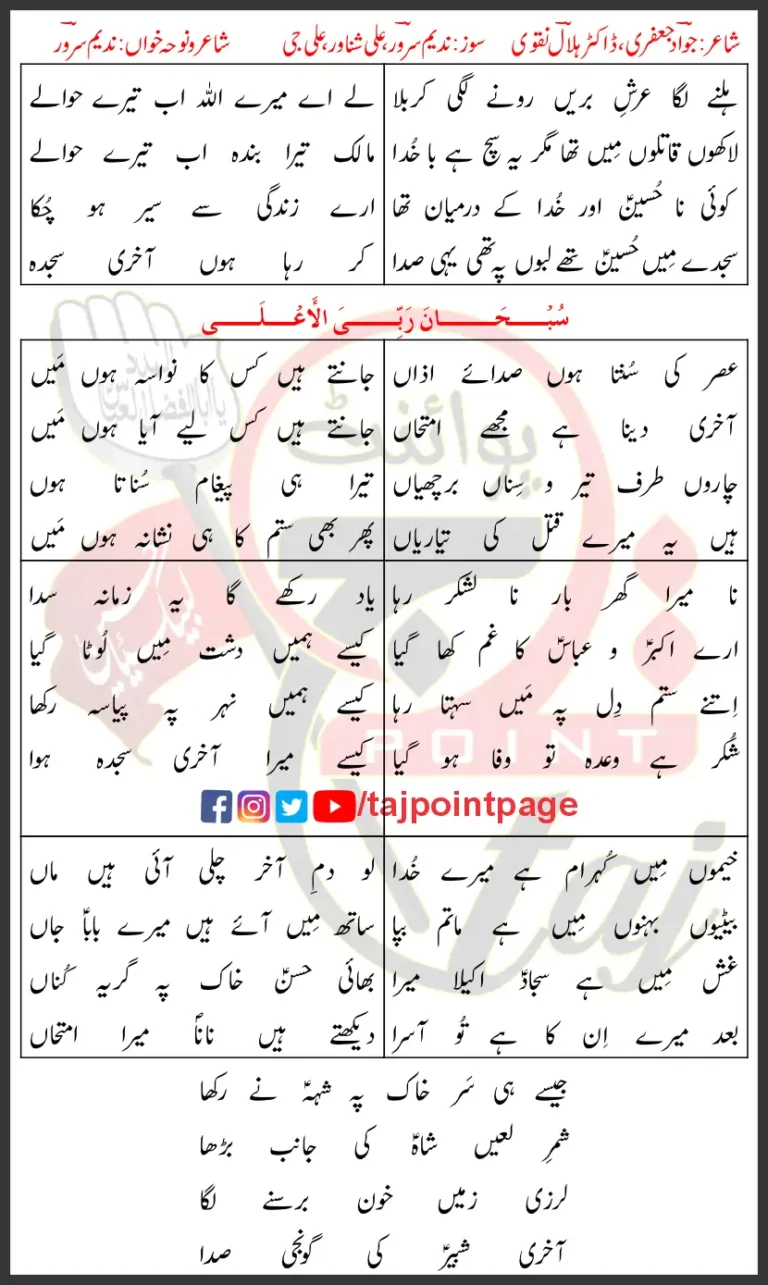 شاعر: جواد جعفری، ڈاکٹر ہلال نقوی سوز: ندیم سرور، علی شناور، علی جی شاعر و نوحہ خواں: ندیم سرور
ہلنے لگا عرشِ بریں رونے لگی کربلا
لاکھوں قاتلوں مِیں تھا مگر یہ سچ ہے با خُدا
کوئی نا حُسینؑ اور خُدا کے درمیان تھا
سجدے مِیں حُسینؑ تھے لبوں پہ تھی یہی صدا
لے اے میرے اللہ اب تیرے حوالے
مالک تیرا بندہ اب تیرے حوالے
ارے زندگی سے سیر ہو چُکا
کر رہا ہوں آخری سجدہ
سُبْحَانَ رَبِّیَ الْأَعْلَی
عصر کی سُنتا ہوں صدائے اذاں
آخری دینا ہے مجھے امتحاں
چاروں طرف تیر و سِناں برچھیاں
ہیں یہ میرے قتل کی تیاریاں
جانتے ہیں کس کا نواسہ ہوں مَیں
جانتے ہیں کس لیے آیا ہوں مَیں
تیرا ہی پیغام سُناتا ہوں
پھر بھی ستم کا ہی نشانہ ہوں مَیں
نا میرا گھر بار نا لشکر رہا
ارے اکبرؑ و عباسؑ کا غم کھا گیا
اِتنے ستم دِل پہ مَیں سہتا رہا
شُکر ہے وعدہ تو وفا ہو گیا
یاد رکھے گا یہ زمانہ سدا
کیسے ہمیں دشت مِیں لُوٹا گیا
کیسے ہمیں نہر پہ پیاسہ رکھا
کیسے میرا آخری سجدہ ہوا
/tajpointpage
خیموں مِیں کُہرام ہے میرے خُدا
بیٹیوں بہنوں مِیں ہے ماتم بپا
غش مِیں ہے سجادؑ اکیلا میرا
بعد میرے اِن کا ہے تُو آسرا
لو دمِ آخر چلی آئی ہیں ماں
ساتھ مِیں آئے ہیں میرے باباؑ جاں
بھائی حسنؑ خاک پہ گریہ کُناں
دیکھتے ہیں ناناؐ میرا امتحاں
جیسے ہی سَر خاک پہ شہہؑ نے رکھا
شمرِ لعیں شاہؑ کی جانب بڑھا
لرزی زمیں خون برسنے لگا
آخری شبیرؑ کی گونجی صدا
پوائنٹ
POINT
taj